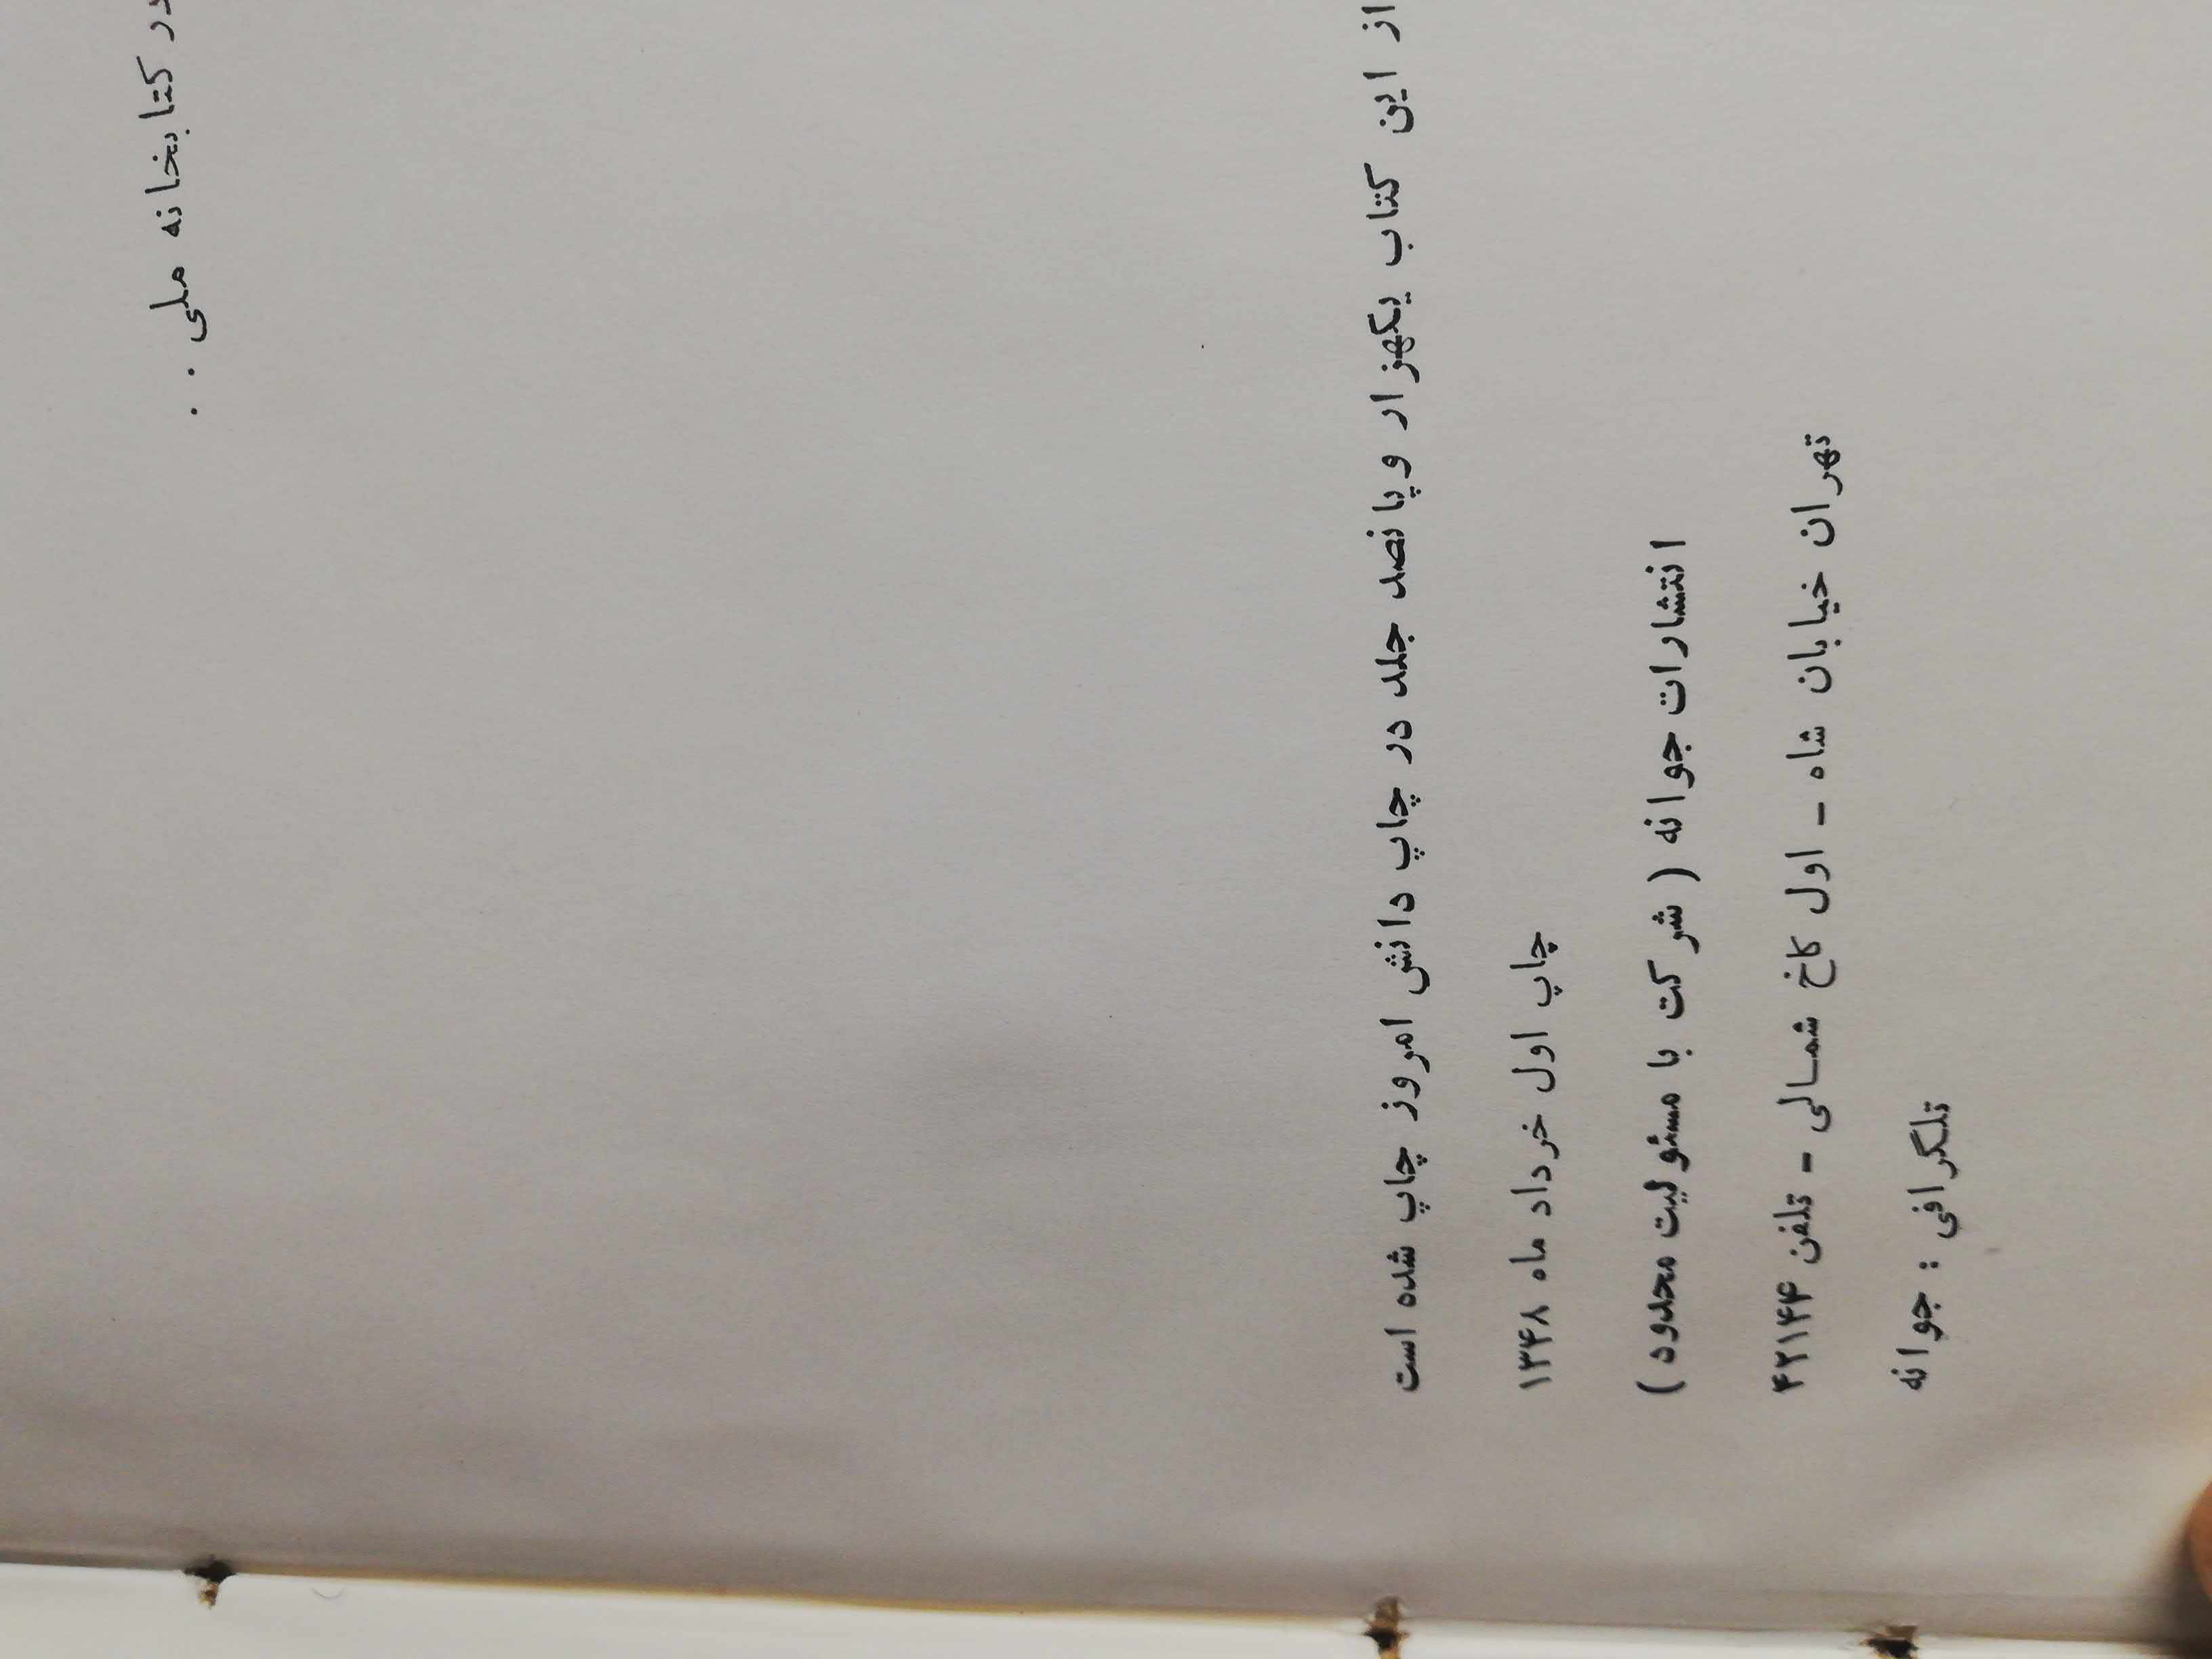 در کتابخانه ملی . .
از این کتاب یکهزار و پانصد جلد در چاپ دانش امروز چاپ شده است
چاپ اول خرداد ماه ۱۳۴۸
انتشارات جوانه ( شرکت با مسئولیت محدود )
تهران خیابان شاه - اول کاخ شمالی - تلفن ۴۲۱۴۴
تلگرافی : جوانه